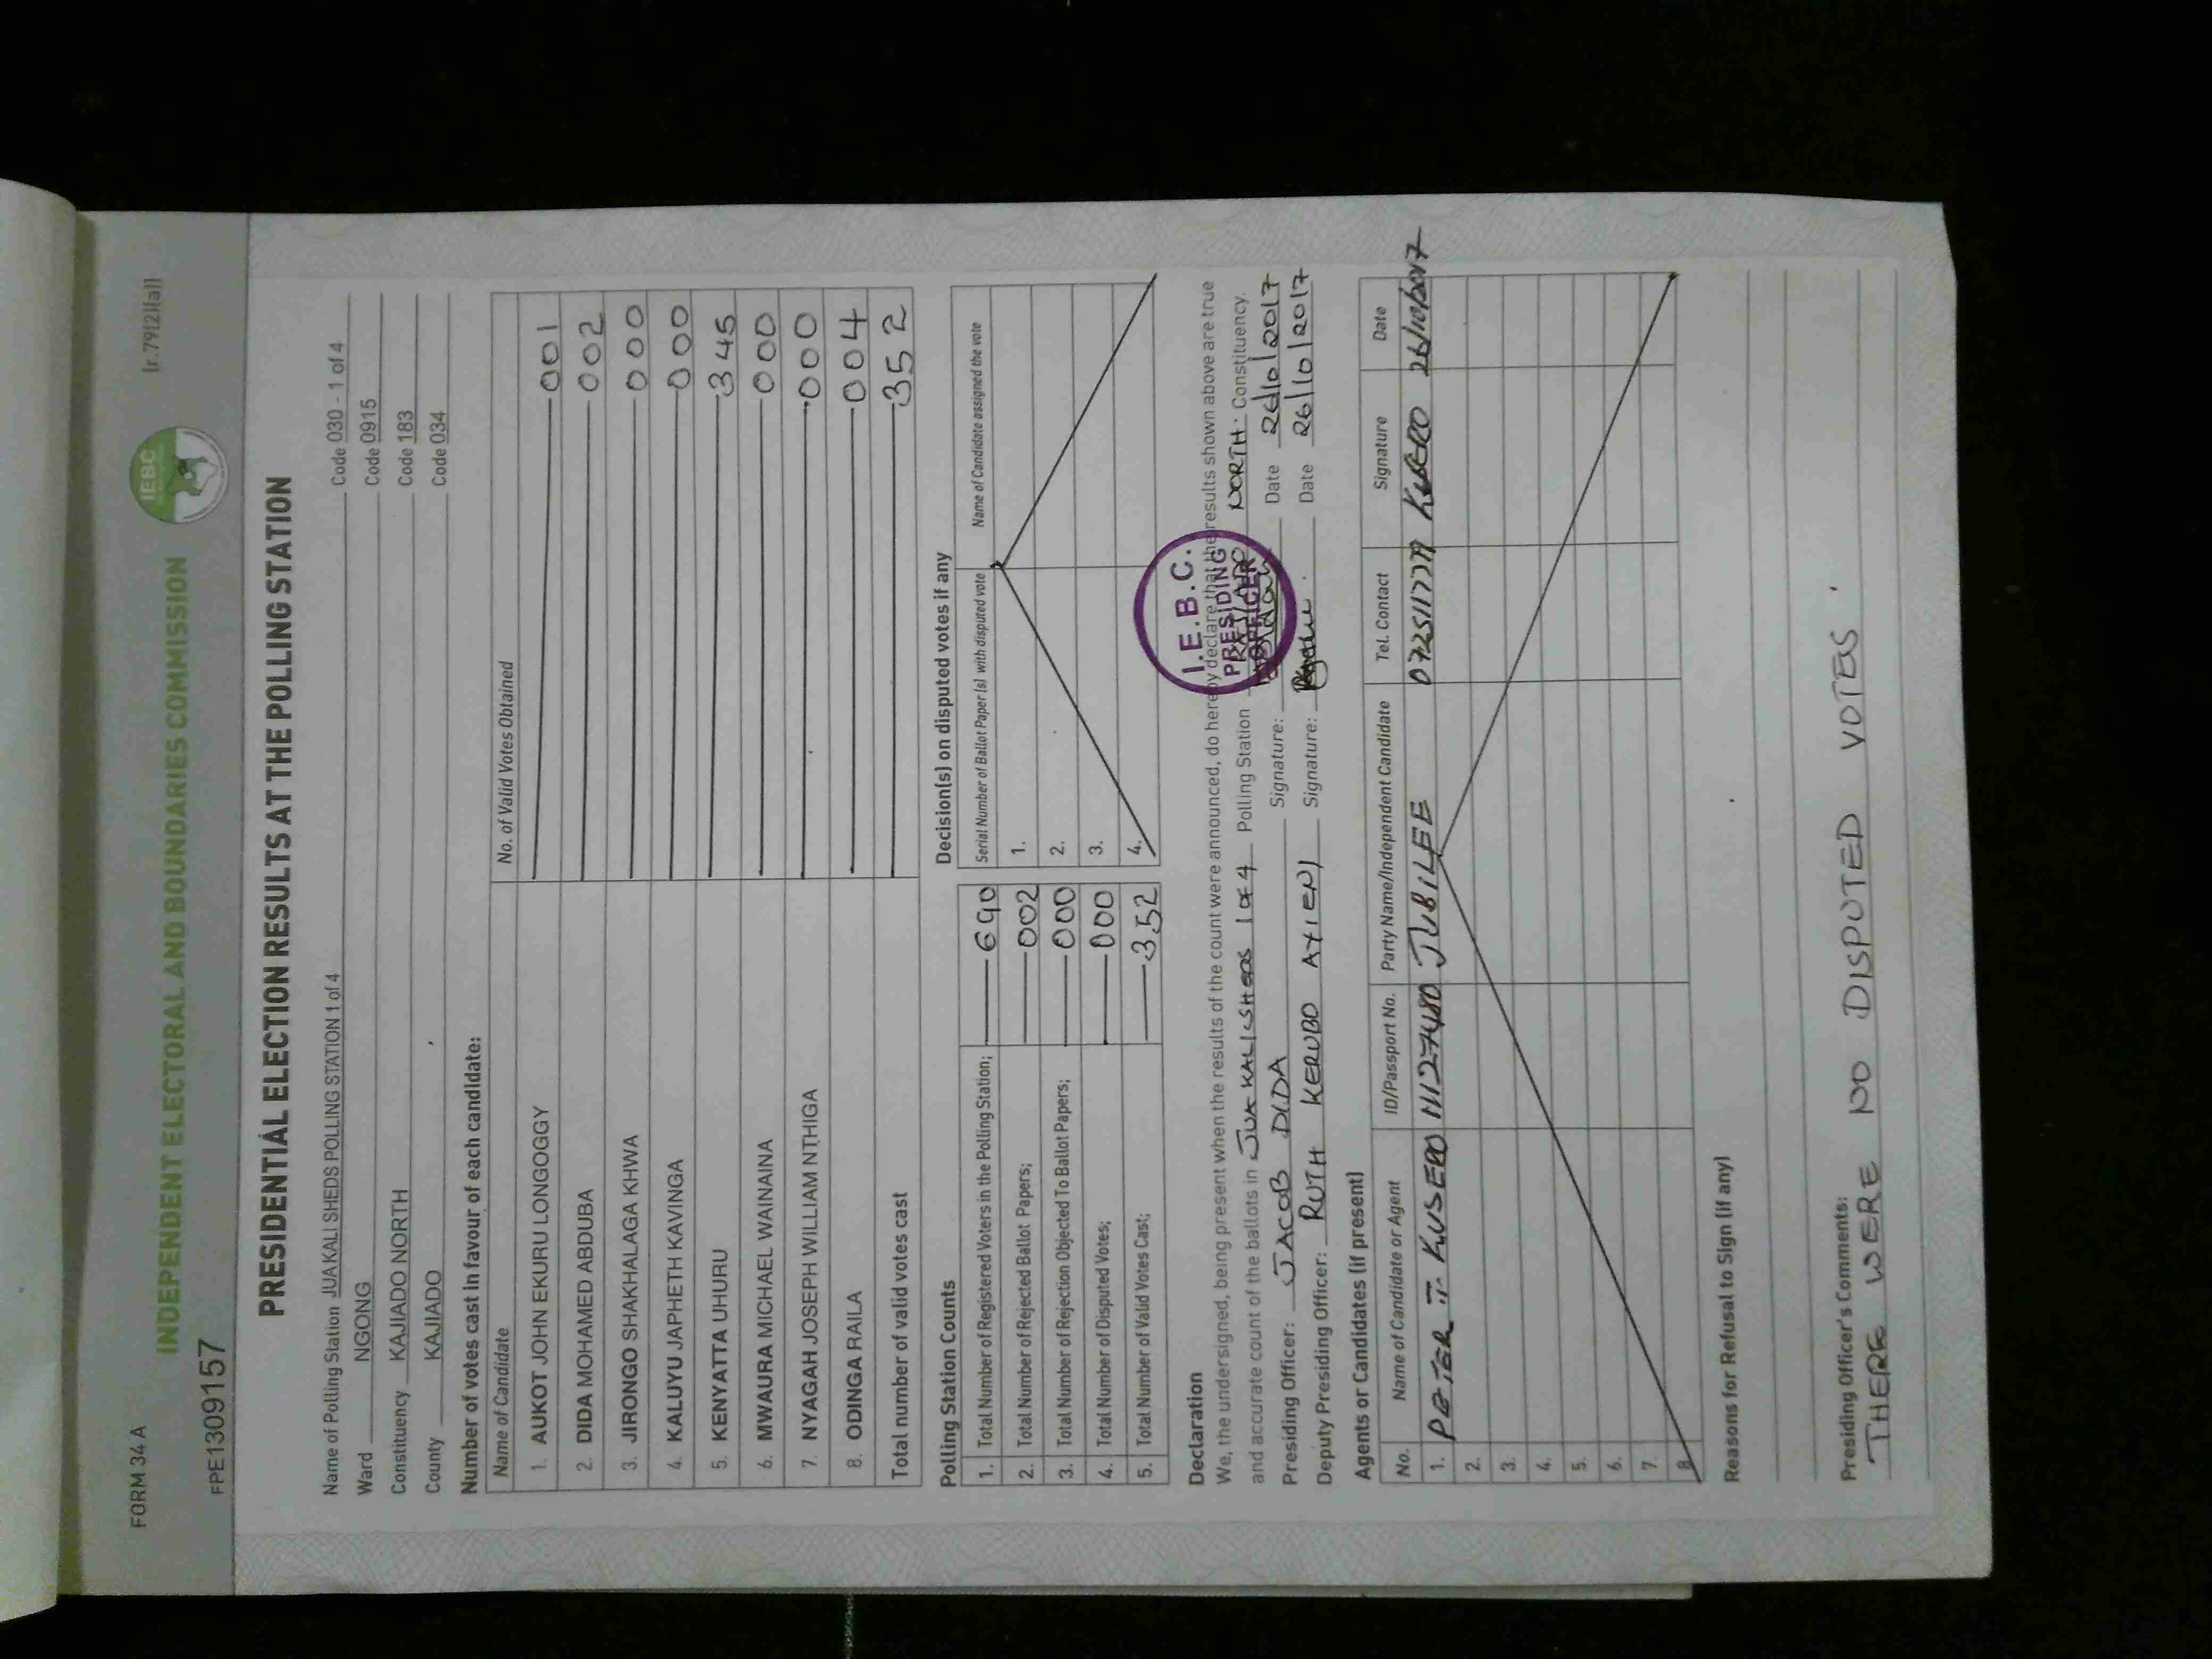 FORM 34 A
INDEPENDENT ELECTORAL AND BOUNDARIES COMMISSION
IEBC
(r.79(2)(a))
FPE1309157
PRESIDENTIAL ELECTION RESULTS AT THE POLLING STATION
Name of Polling Station JUA KALI SHEDS POLLING STATION 1 of 4 Code 030 - 1 of 4
Ward NGONG Code 0915
Constituency KAJIADO NORTH Code 183
County KAJIADO Code 034
Number of votes cast in favour of each candidate:
Name of Candidate No. of Valid Votes Obtained
1. AUKOT JOHN EKURU LONGOGGY 001
2. DIDA MOHAMED ABDUBA 002
3. JIRONGO SHAKHALAGA KHWA 000
4. KALUYU JAPHETH KAVINGA 000
5. KENYATTA UHURU 345
6. MWAURA MICHAEL WAINAINA 000
7. NYAGAH JOSEPH WILLIAM NTHIGA 000
8. ODINGA RAILA 004
Total number of valid votes cast 352
Polling Station Counts
1. Total Number of Registered Voters in the Polling Station; 690
2. Total Number of Rejected Ballot Papers; 002
3. Total Number of Rejection Objected To Ballot Papers; 000
4. Total Number of Disputed Votes; 000
5. Total Number of Valid Votes Cast; 352
Decision(s) on disputed votes if any
Serial Number of Ballot Paper(s) with disputed vote Name of Candidate assigned the vote
1.
2.
3.
4.
Declaration
We, the undersigned, being present when the results of the count were announced, do hereby declare that the results shown above are true
and accurate count of the ballots in JUA KALI SHEDS 1 of 4 Polling Station KAJIADO NORTH. Constituency.
Presiding Officer: JACOB DIDA Signature: Date 26/10/2017
Deputy Presiding Officer: RUTH KERUBO AYIENI Signature: Date 26/10/2017
I.E.B.C.
PRESIDING
OFFICER
Agents or Candidates (if present)
No. Name of Candidate or Agent ID/Passport No. Party Name/Independent Candidate Tel. Contact Signature Date
1. PETER T. KUSERO 11127480 JUBILEE KUSERO 26/10/2017
2.
3.
4.
5.
6.
7.
8.
Reasons for Refusal to Sign (if any)
Presiding Officer's Comments:
THERE WERE NO DISPUTED VOTES.